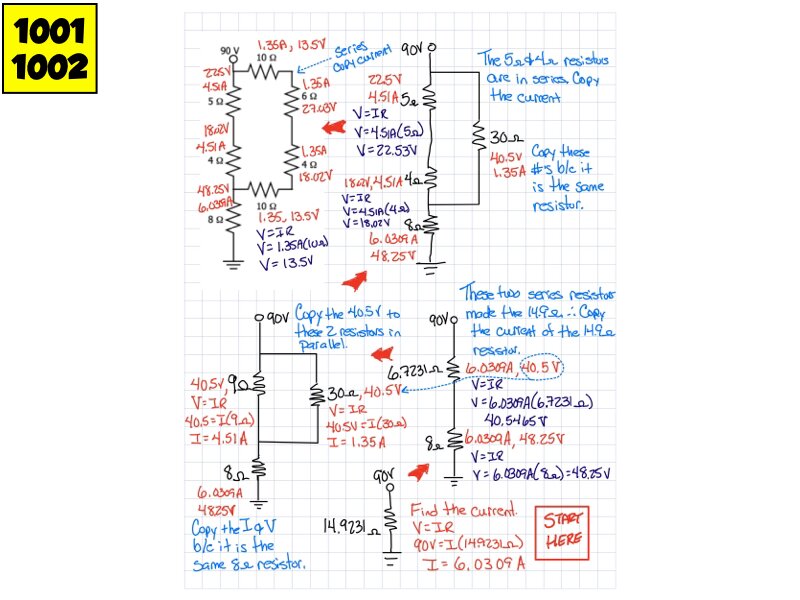 1001
1002
90 V
1.35A, 13.5V
10 Ω
series
copy current
22.5V
4.51A
5 Ω
1.35A
6 Ω
27.03V
18.02V
4.51A
4 Ω
1.35A
4 Ω
18.02V
48.25V
6.0309A
8 Ω
10 Ω
1.35, 13.5V
V=IR
V=1.35A(10Ω)
V=13.5V
90V
22.5V
4.51A
5Ω
V=IR
V=4.51A(5Ω)
V=22.53V
30Ω
40.5V
1.35A
18.02V, 4.51A
4Ω
V=IR
V=4.51A(4Ω)
V=18.02V
8Ω
6.0309A
48.25V
The 5Ω & 4Ω resistors
are in series. Copy
the current
Copy these
#s b/c it
is the same
resistor.
90V
Copy the 40.5V to
these 2 resistors in
parallel.
40.5V,
9Ω
V=IR
40.5=I(9Ω)
I=4.51A
30Ω, 40.5V
V=IR
40.5V=I(30Ω)
I=1.35A
8Ω
6.0309A
48.25V
Copy the I & V
b/c it is the
same 8Ω resistor.
These two series resistor
made the 14.9Ω ∴ Copy
the current of the 14.9Ω
resistor.
90V
6.7231Ω
6.0309A, 40.5V
V=IR
V=6.0309A(6.7231Ω)
40.5465V
8Ω
6.0309A, 48.25V
V=IR
V=6.0309A(8Ω)=48.25V
90V
14.9231Ω
Find the current.
V=IR
90V=I(14.9231Ω)
I=6.0309A
START
HERE